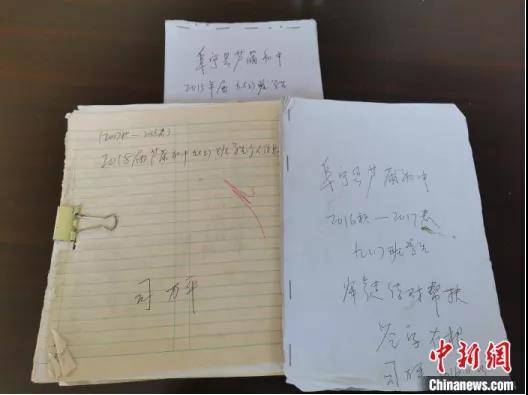 阜宁县芦蒲初中
2015年届九(2)班学生
(2017秋—2018春)
2018届芦蒲初中九(2)班学生个人信息
司方平
阜宁县芦蒲初中
2016秋—2017春
九(2)班学生
师徒结对帮扶
签字
司
中新網
CHINANEWS
www.Chinanews.com